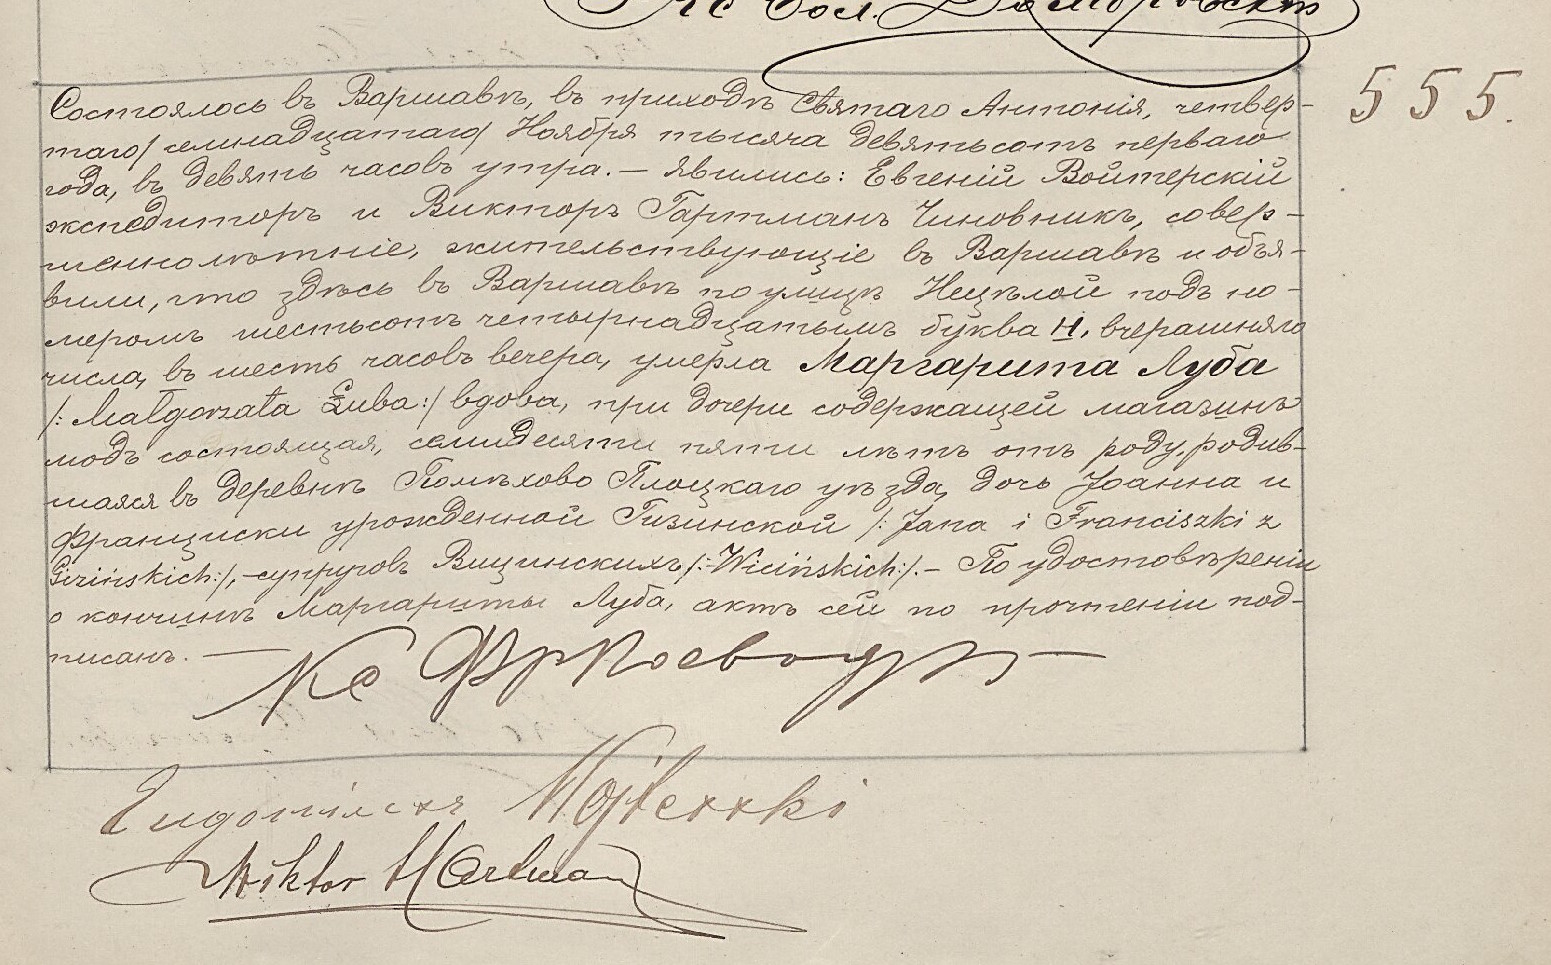 Кс Бол.
Состоялось въ Варшавѣ, въ приходѣ Святаго Антонія, четвер-
таго/ семнадцатаго/ Ноября тысяча девятьсотъ перваго
года, въ девять часовъ утра. — Явились: Евгеній Войтерскій
экспедиторъ и Викторъ Гартманъ Чиновникъ, совер-
меннолѣтніе, жительствующіе въ Варшавѣ и объя-
вили, что здѣсь въ Варшавѣ по улицѣ Нецѣлой подъ но-
меромъ шестьсотъ четырнадцатымъ буква Н, вчерашняго
числа, въ шесть часовъ вечера, умерла Маргарита Луба
/: Małgorzata Łuba :/ вдова, при дочери содержащей магазинъ
модъ состоящая, семидесяти пяти лѣтъ отъ роду, родив-
шаяся въ деревнѣ Помѣхово Плоцкаго уѣзда, дочь Іоанна и
Франциски урожденной Гизинской /: Jana i Franciszki z
Gizińskich :/, супруговъ Вицинскихъ /: Wicińskich :/. — По удостовѣреніи
о кончинѣ Маргариты Луба, актъ сей по прочтеніи под-
писанъ. —
Кс
Eugeniusz Wojterski
Wiktor Hartman
555.